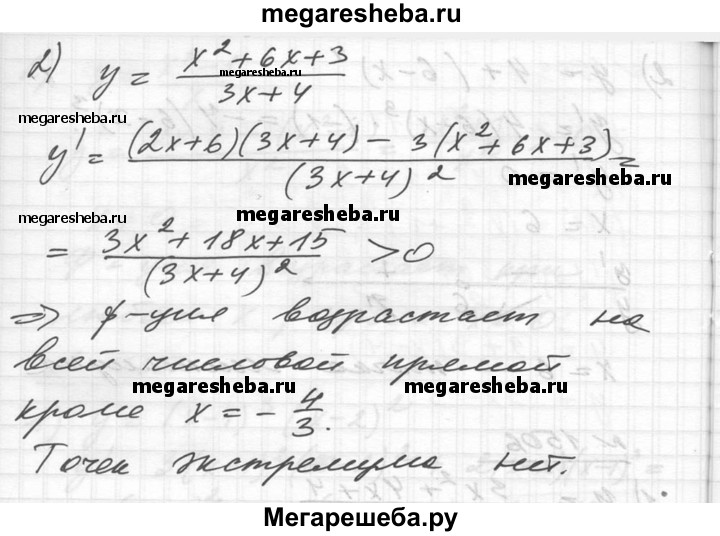 megaresheba.ru
2) y = (x² + 6x + 3)/(3x + 4)
megaresheba.ru
megaresheba.ru
y' = ((2x+6)(3x+4) − 3(x² + 6x + 3))/(3x+4)² =
megaresheba.ru
megaresheba.ru
megaresheba.ru
= (3x² + 18x + 15)/(3x+4)² > 0
⇒ ф-ция возрастает на
всей числовой прямой
megaresheba.ru
megaresheba.ru
кроме x = − 4/3.
Точек экстремума нет.
Мегарешеба.ру